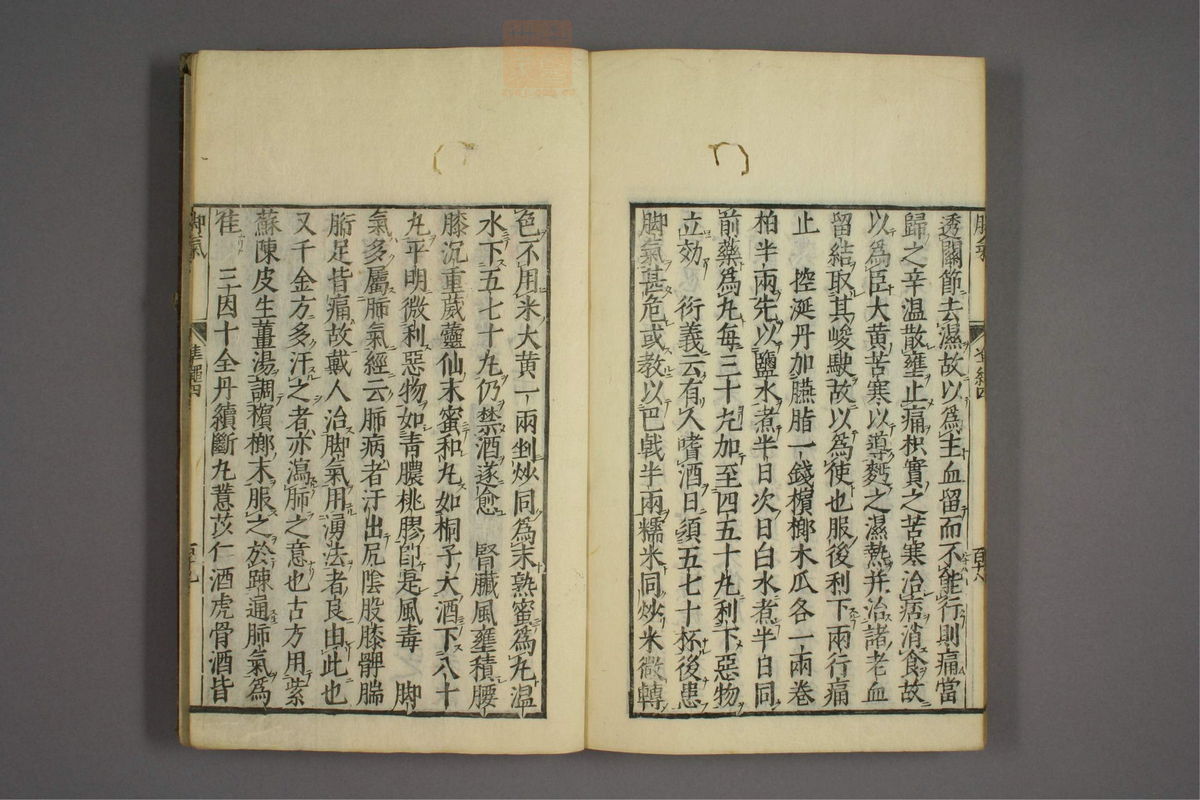 脚氣
準繩四
百十八
透關節去濕故以爲主血留而不能行則痛當
歸之辛溫散壅止痛枳實之苦寒治痞消食故
以爲臣大黃苦寒以導麪之濕熱并治諸老血
留結取其峻駛故以爲使也服後利下兩行痛
止　控涎丹加臙脂一錢檳榔木瓜各一兩卷
柏半兩先以鹽水煮半日次日白水煮半日同
前藥爲丸每三十丸加至四五十丸利下惡物
立効　衍義云有人嗜酒日須五七十杯後患
脚氣甚危或教以巴戟半兩糯米同炒米微轉
色不用米大黃一兩剉炒同爲末熟蜜爲丸溫
水下五七十丸仍禁酒遂愈　腎臟風壅積腰
膝沉重葳靈仙末蜜和丸如桐子大酒下八十
丸平明微利惡物如青膿桃膠卽是風毒　脚
氣多屬肺氣經云肺病者汗出尻陰股膝髀腨
胻足皆痛故戴人治脚氣用湧法者良由此也
又千金方多汗之者亦瀉肺之意也古方用紫
蘇陳皮生薑湯調檳榔末服之於踈通肺氣爲
佳　三因十全丹續斷丸薏苡仁酒虎骨酒皆
脚氣
準繩四
百十九